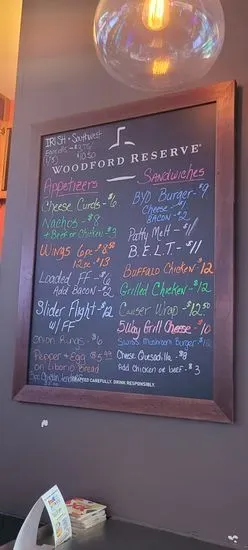 IRISH + Southwest
$10.50
WOODFORD RESERVE
Appetizers
Cheese Curds - $6
Nachos - $9
+ Beef or Chicken $3
Wings 6pc - $8.50
12pc - $13
Loaded FF - $6
Add Bacon - $2
Slider Flight - $12
w/ FF
Onion Rings - $6
Pepper + Egg $5.99
on Liborio Bread
Sandwiches
BYO Burger - $9
Cheese - $1
Bacon - $2
Patty Melt - $11
B.E.L.T - $11
Buffalo Chicken $12
Grilled Chicken - $12
Caesar Wrap - $12.50
5 Way Grill Cheese - $10
Swiss Mushroom Burger -
Cheese Quesadilla - $8
Add Chicken or beef - $3
CRAFTED CAREFULLY. DRINK RESPONSIBLY.